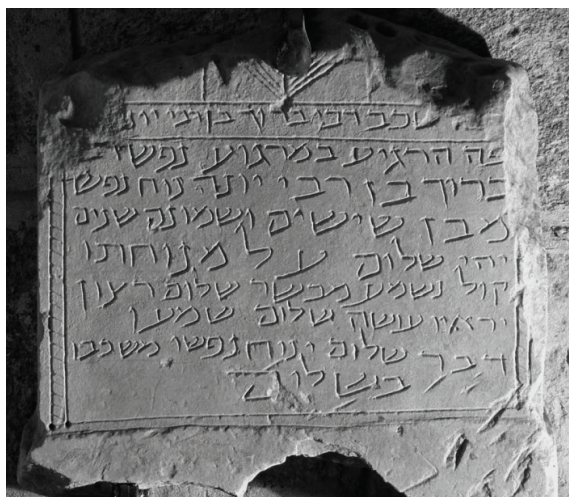 שכב רבי ברוך בן רבי יונ
פה הרגיע במרגוע נפש
ברוך בן רבי יונה נוח נפש
מבן שישים ושמונה שנים
יהי שלום על מנוחתו
קול נשמע מבשר שלום רצון
יראיו עושה שלום שמען
דבר שלום ינוח נפשו משכבו
בשלום